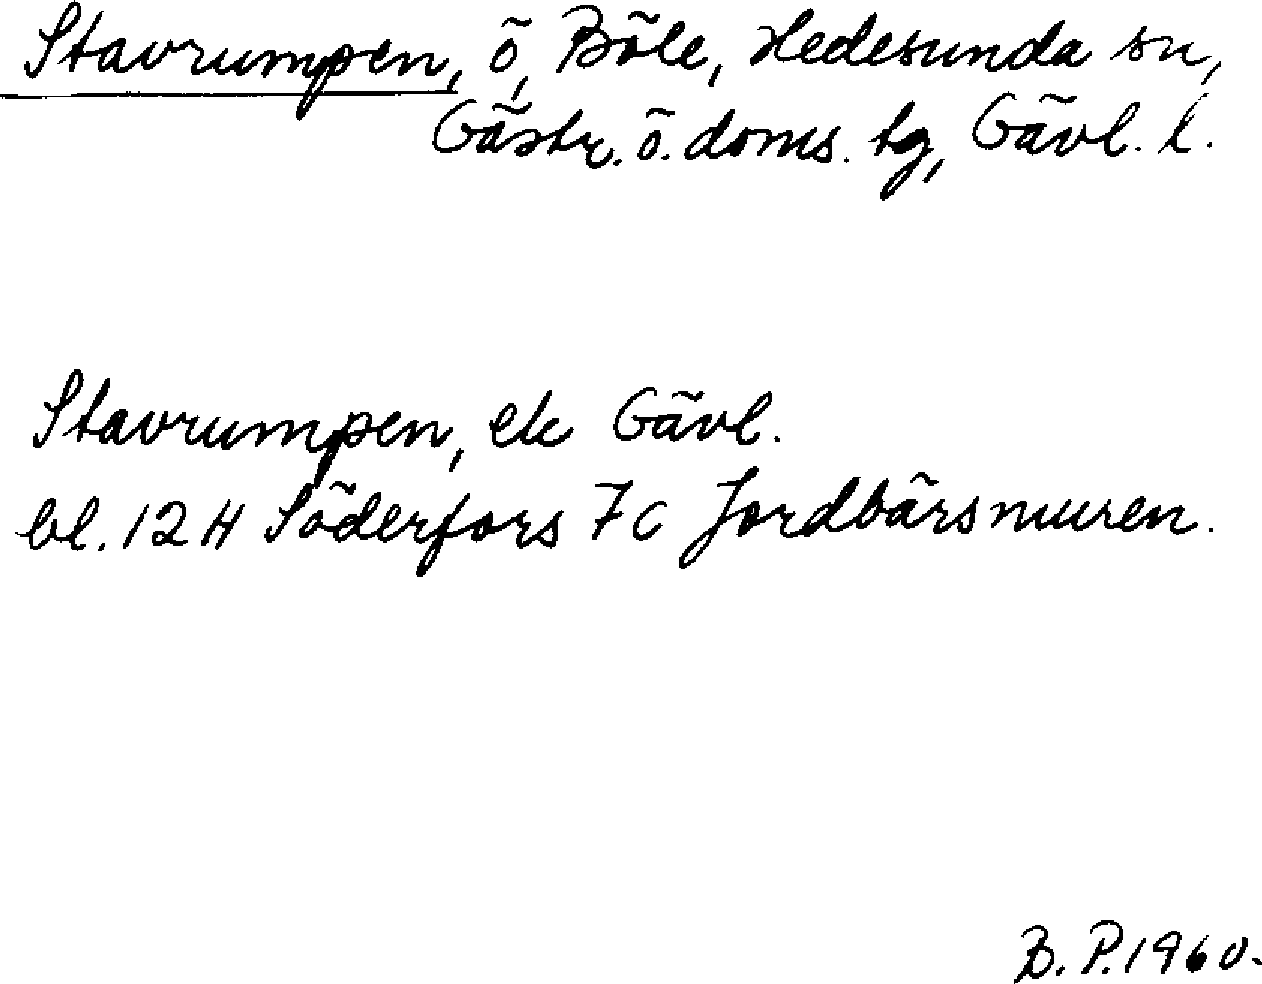 Stavrumpen, ö, Böle, Hedesunda sn,
Gästr. ö. doms. tg, Gävl. l.
Stavrumpen, ek Gävl.
bl. 12 H Söderfors 7 c Jordbärsmuren.
B. P. 1960.